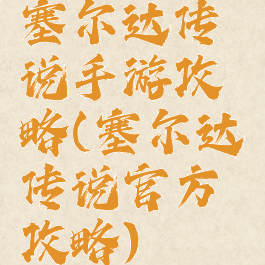 塞尔达传
说手游攻
略(塞尔达
传说官方
攻略)